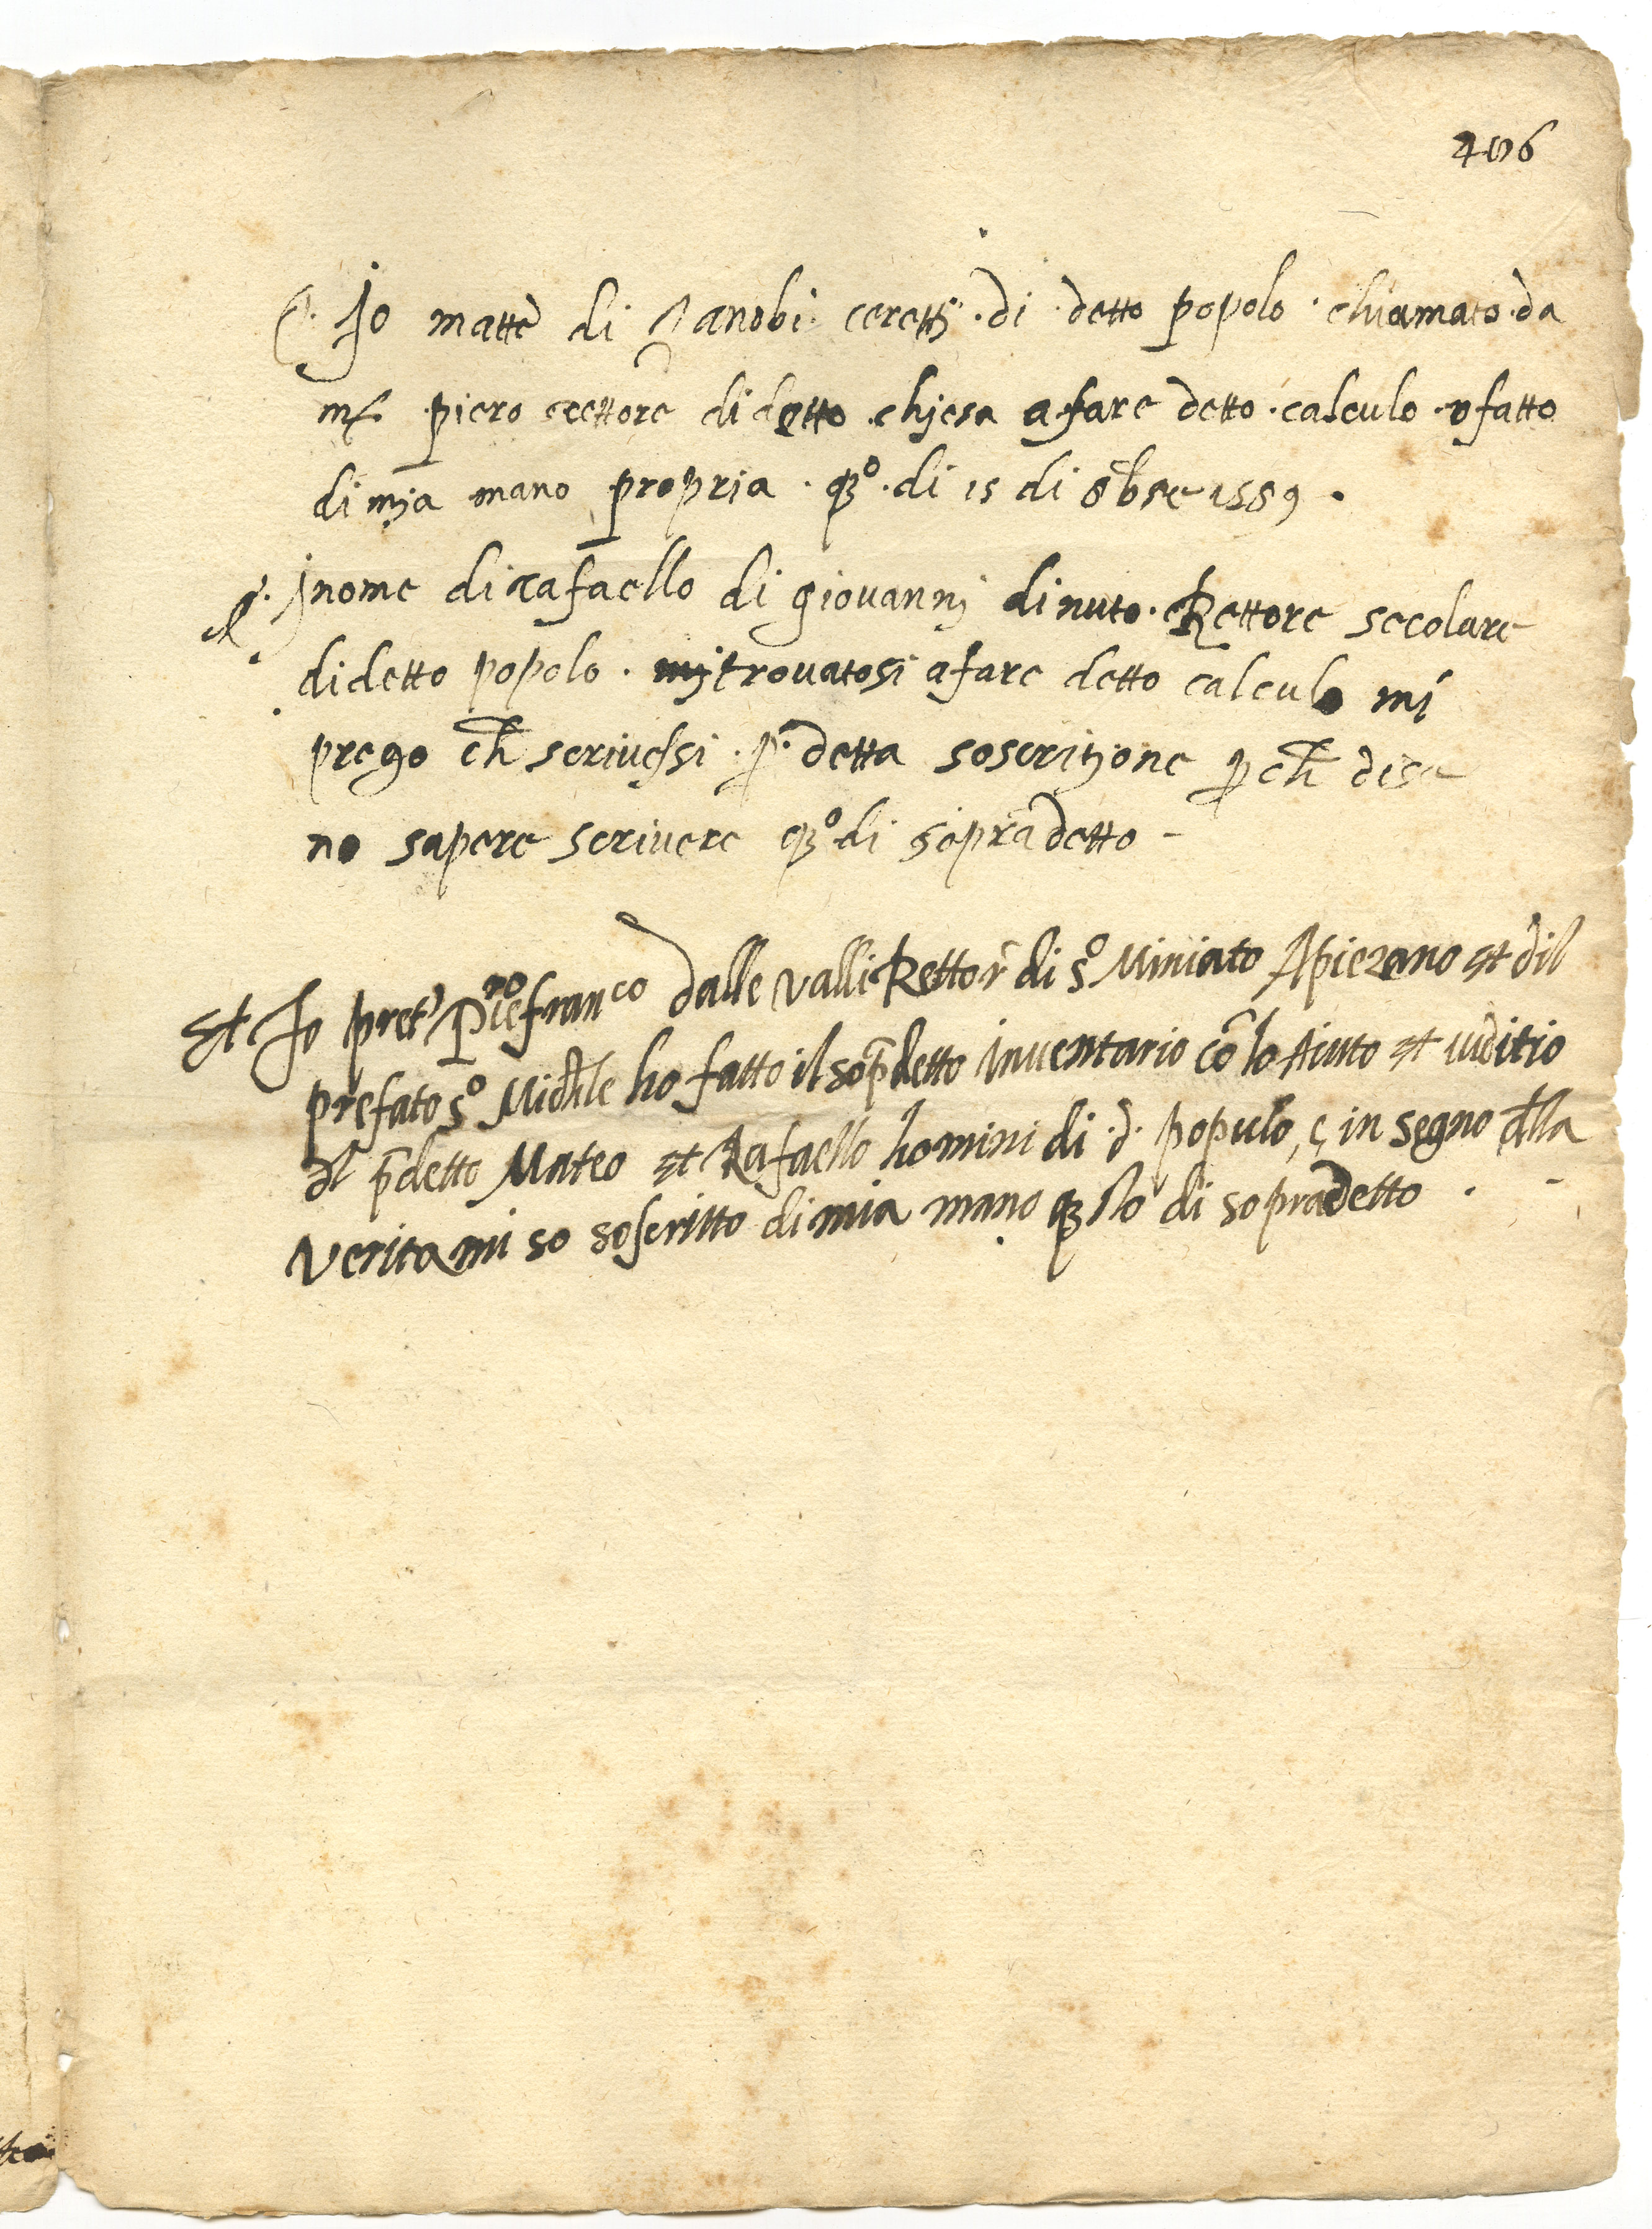 406
Io matteo di Zanobi ceretti · di · detto popolo · chiamato · da
piero rettore di detto chjesa a fare detto · calculo · o fatto
di mja mano propria · qº · di 15 di 8bre 1589 ·
I nome di rafaello di giovannj di nuto · Rettore secolare
di detto popolo · trovatosi a fare detto calculo mi
prego ch̄ scrivessi · p · detta soscritione p ch̄ dise
no sapere scrivere qº di sopradetto -
Et Io prete Pierofranco dalle valli Rettor di sº Miniato A piezano et dil
prefato sº Michele ho fatto il sop̄detto inventario cō lo Aiuto et iuditio
dl p̄detto Mateo et Rafaello homini di · d · populo, in segno dlla
verita mi so soscritto di mia mano qsto di sopradetto ·